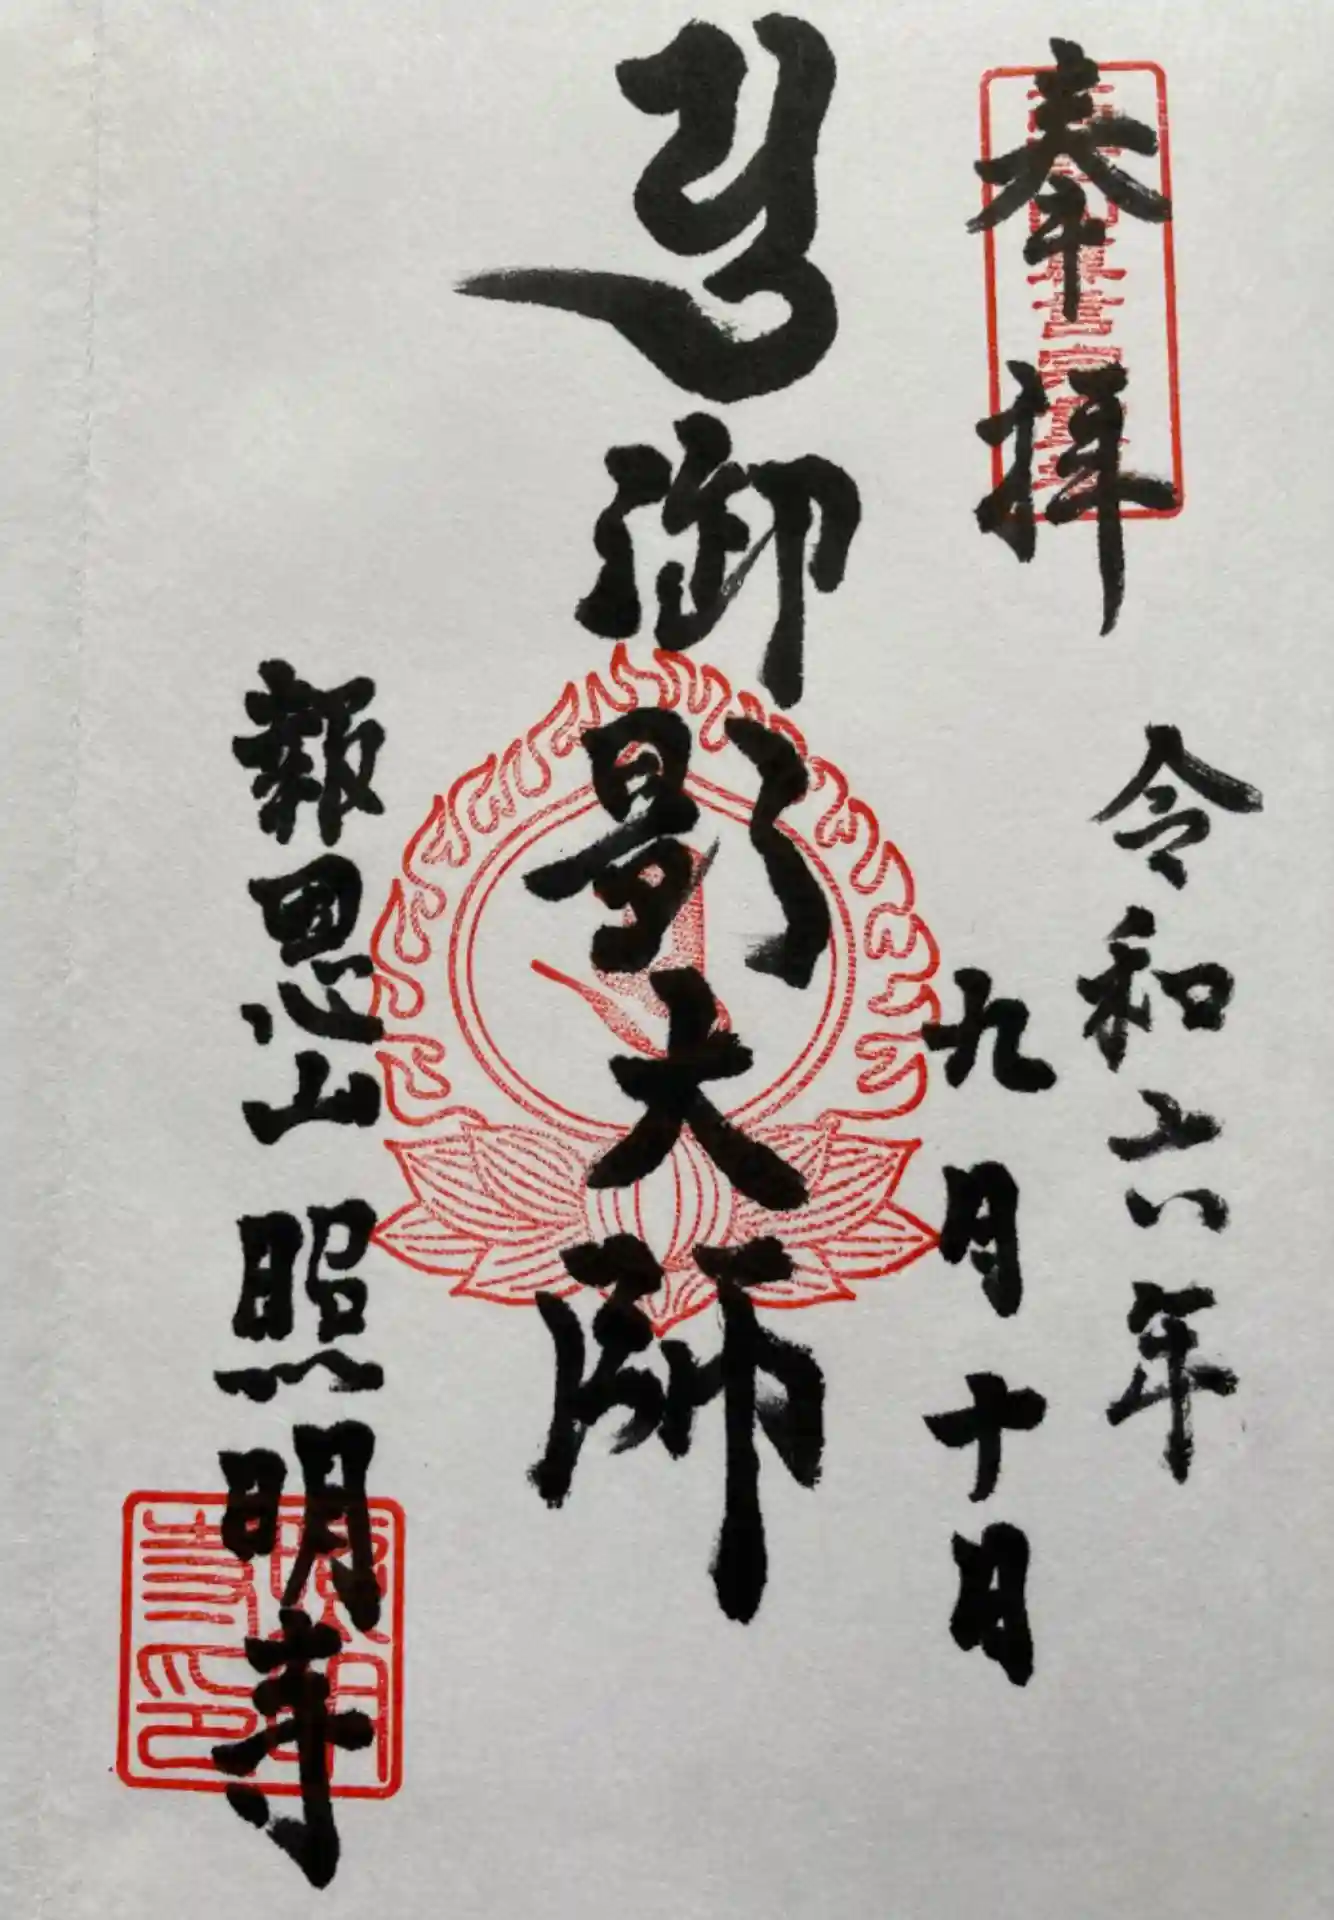 奉拝
令和六年
九月十日
𑖦𑖿 御影大師
報恩山 照明寺